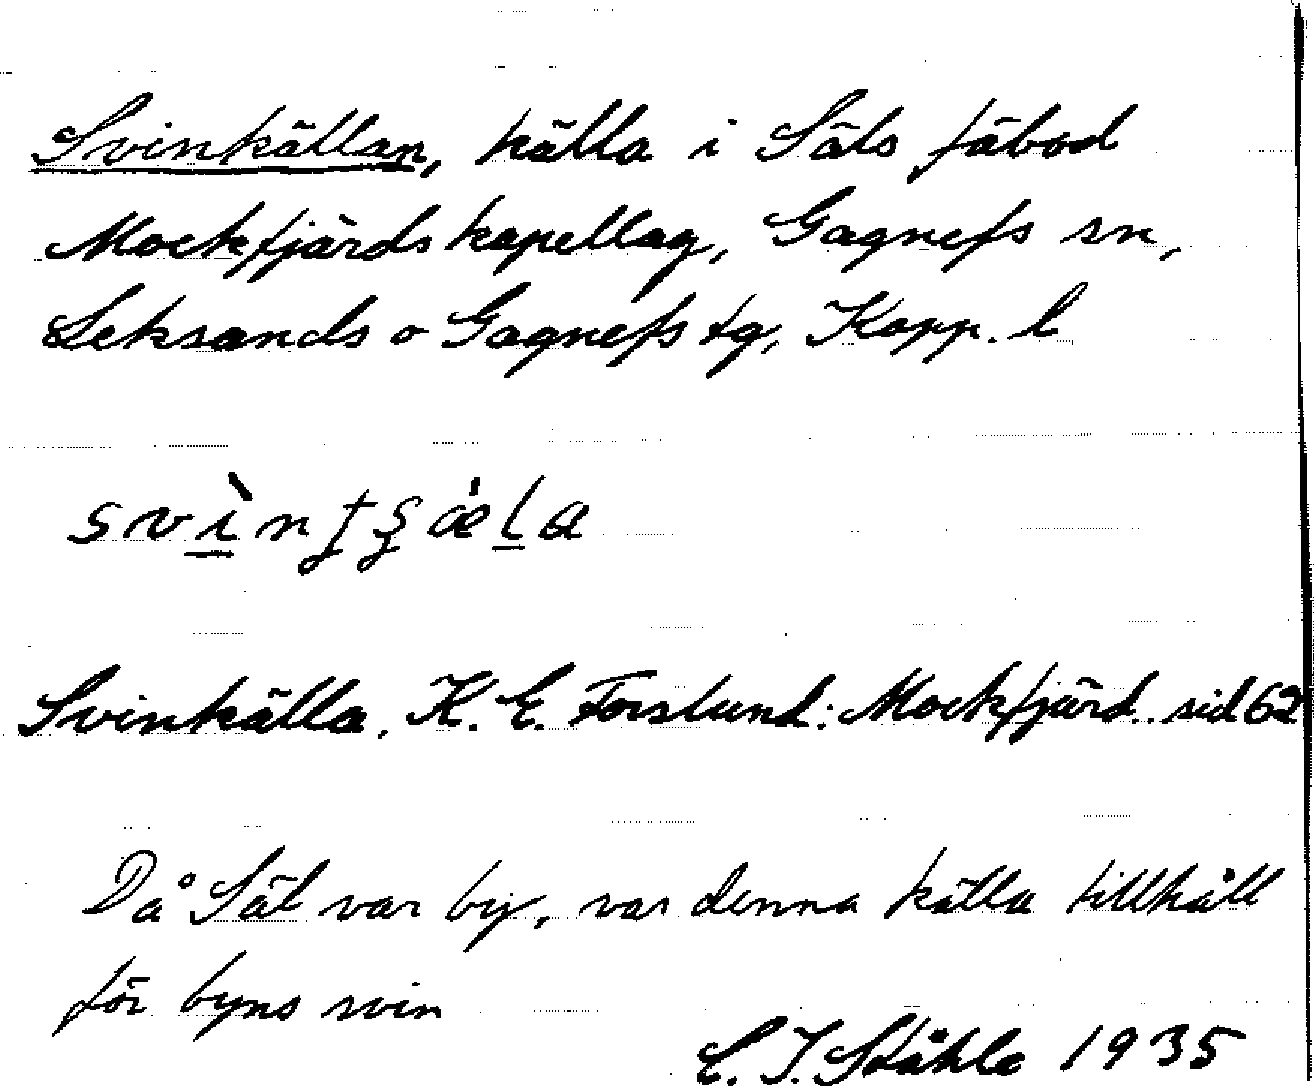 Svinkällan, källa i Säls fäbod
Mockfjärds kapellag, Gagnefs sn,
Leksands o Gagnefs tg, Kopp. l
Svinkälla. K. E. Forslund: Mockfjärd. sid 62
Då Säl var by, var denna källa tillhåll
för byns svin
C. I. Ståhle 1935